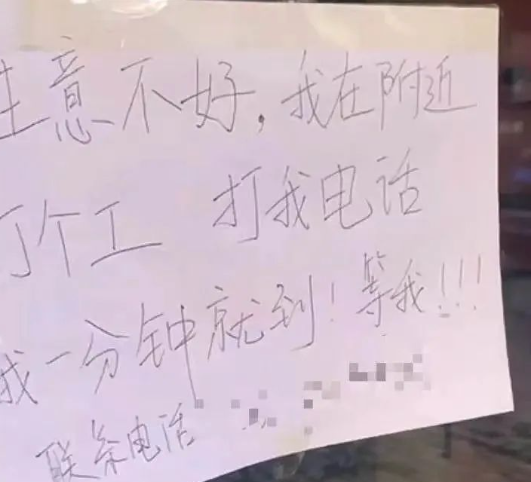 生意不好,我在附近
打个工 打我电话
我一分钟就到!等我!!!
联系电话